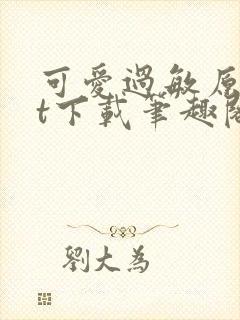 可愛過敏原
t下載筆趣閣
劉大為